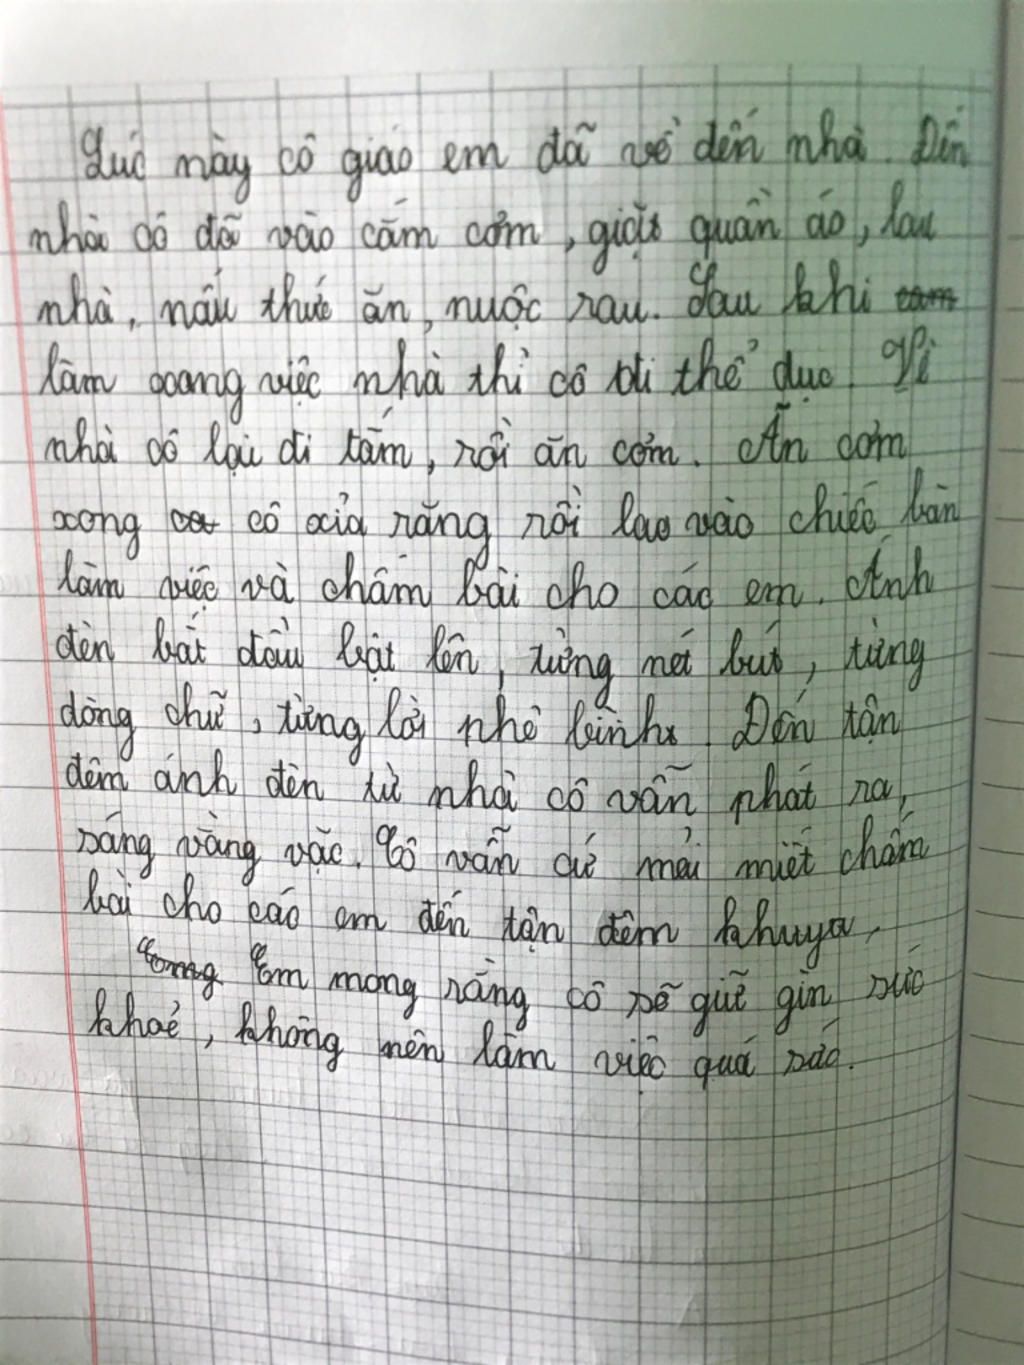 Lúc này cô giáo em đã về đến nhà. Đến
nhà cô đã vào cắm cơm, giặt quần áo, lau
nhà, nấu thức ăn, nước rau. Sau khi
làm xong việc nhà thì cô đi thể dục. Về
nhà cô lại đi tắm, rồi ăn cơm. Ăn cơm
xong cô xỉa răng rồi lao vào chiếc bàn
làm việc và chấm bài cho các em. Ánh
đèn bắt đầu bật lên, từng nét bút, từng
dòng chữ, từng lời phê bình. Đến tận
đêm ánh đèn từ nhà cô vẫn phát ra,
sáng vằng vặc. Cô vẫn cứ mải miết chấm
bài cho các em đến tận đêm khuya,
Em mong rằng cô sẽ giữ gìn sức
khoẻ, không nên làm việc quá sức.